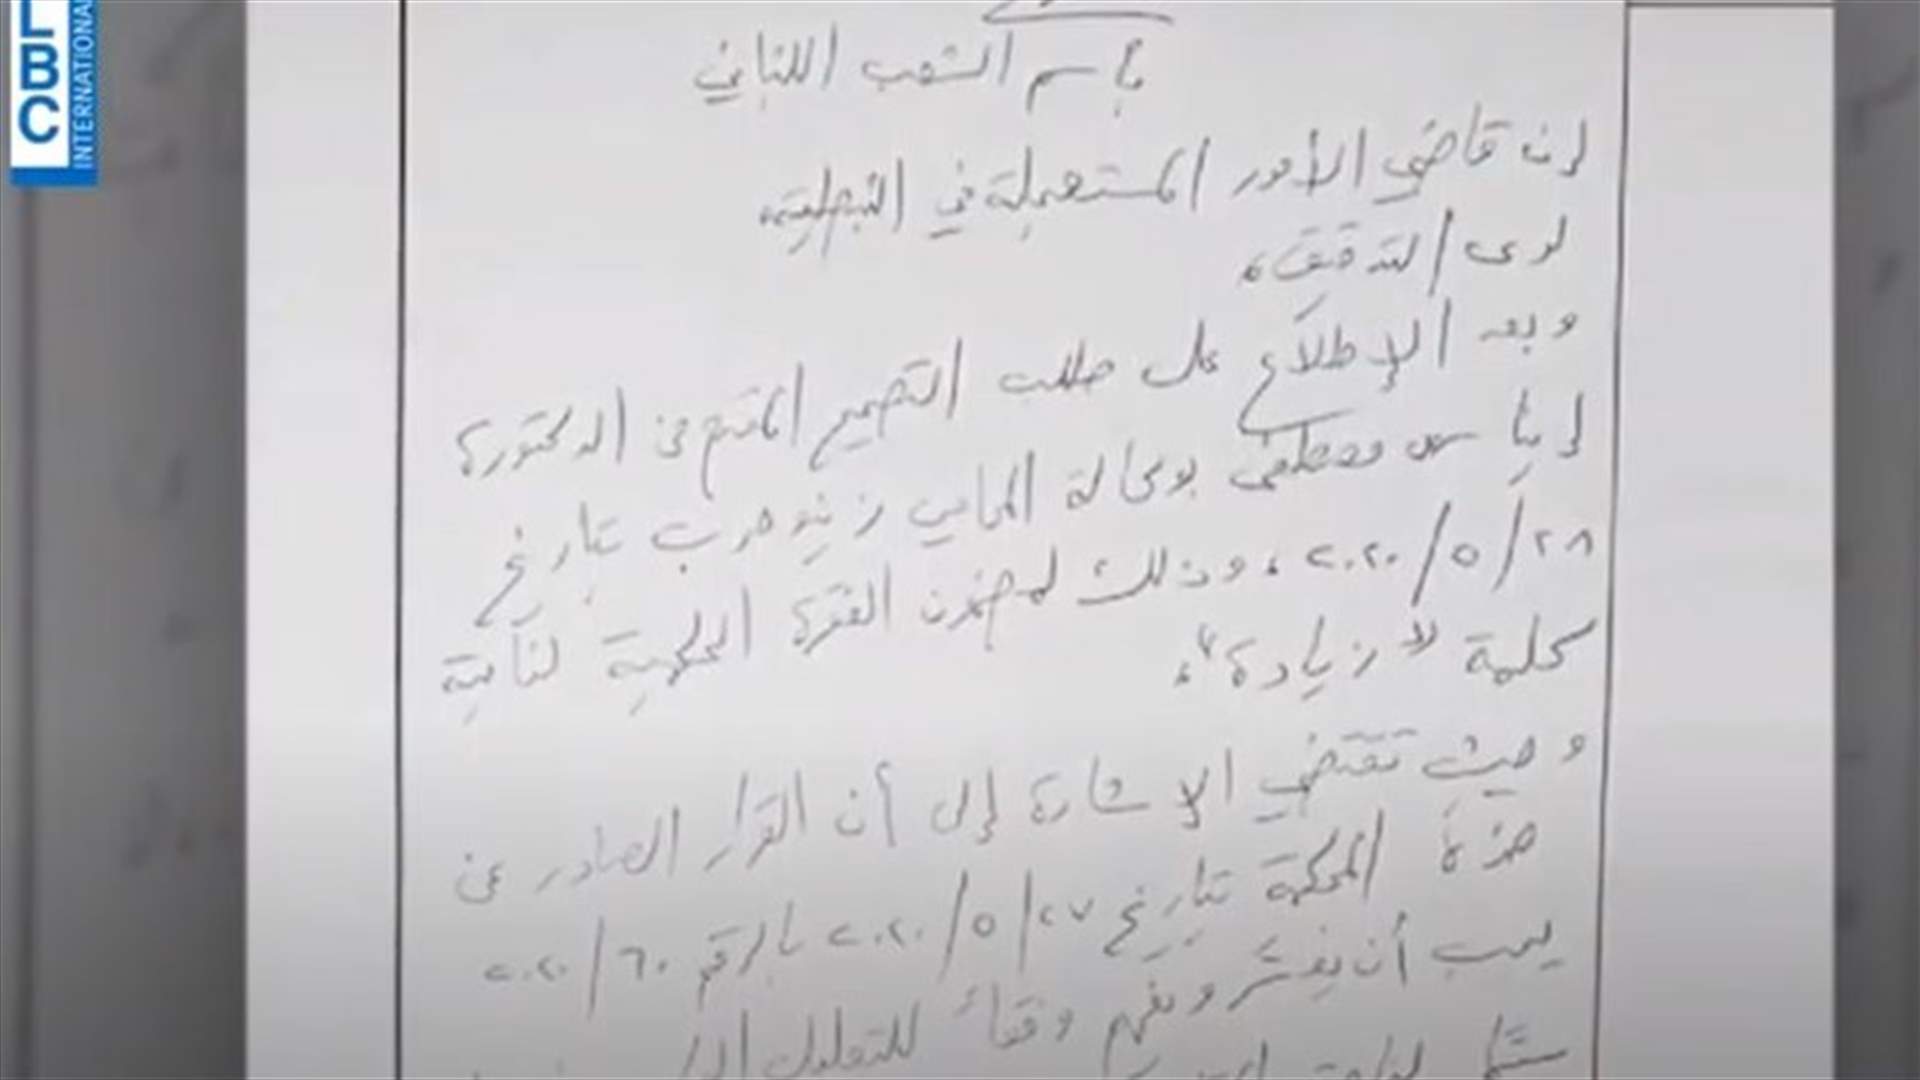 LBC
INTERNATIONAL
باسم الشعب اللبناني
إن قاضي الأمور المستعجلة في النبطية،
لدى التدقيق،
وبعد الإطلاع على طلب التصحيح المقدم من الدكتورة
إيناس مصطفى بوكالة المحامي زيد حرب بتاريخ
٢٨/٥/٢٠٢٠، وذلك لمضمون الفقرة الحكمية لناحية
كلمة "زيادة"،
وحيث تقتضي الإشارة إلى أن القرار الصادر عن
هذه المحكمة بتاريخ ٢٧/٥/٢٠٢٠ بالرقم ٦٠/٢٠٢٠
يجب أن يفسّر ويفهم وفقاً للتعليل